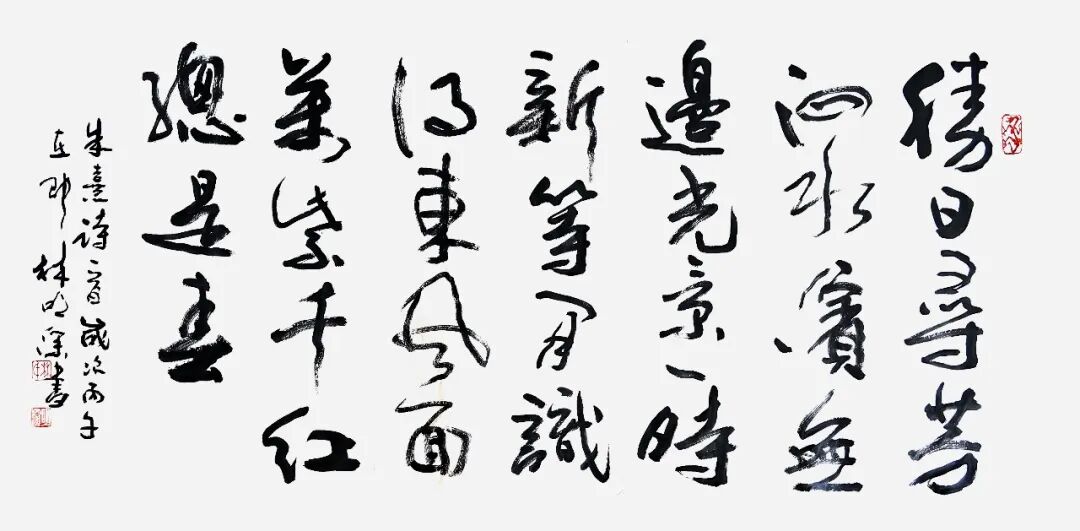 勝日尋芳
泗水濱無
邊光景一時
新等閒識
得東風面
萬紫千紅
總是春
朱熹詩一首歲次丙午
林明深書